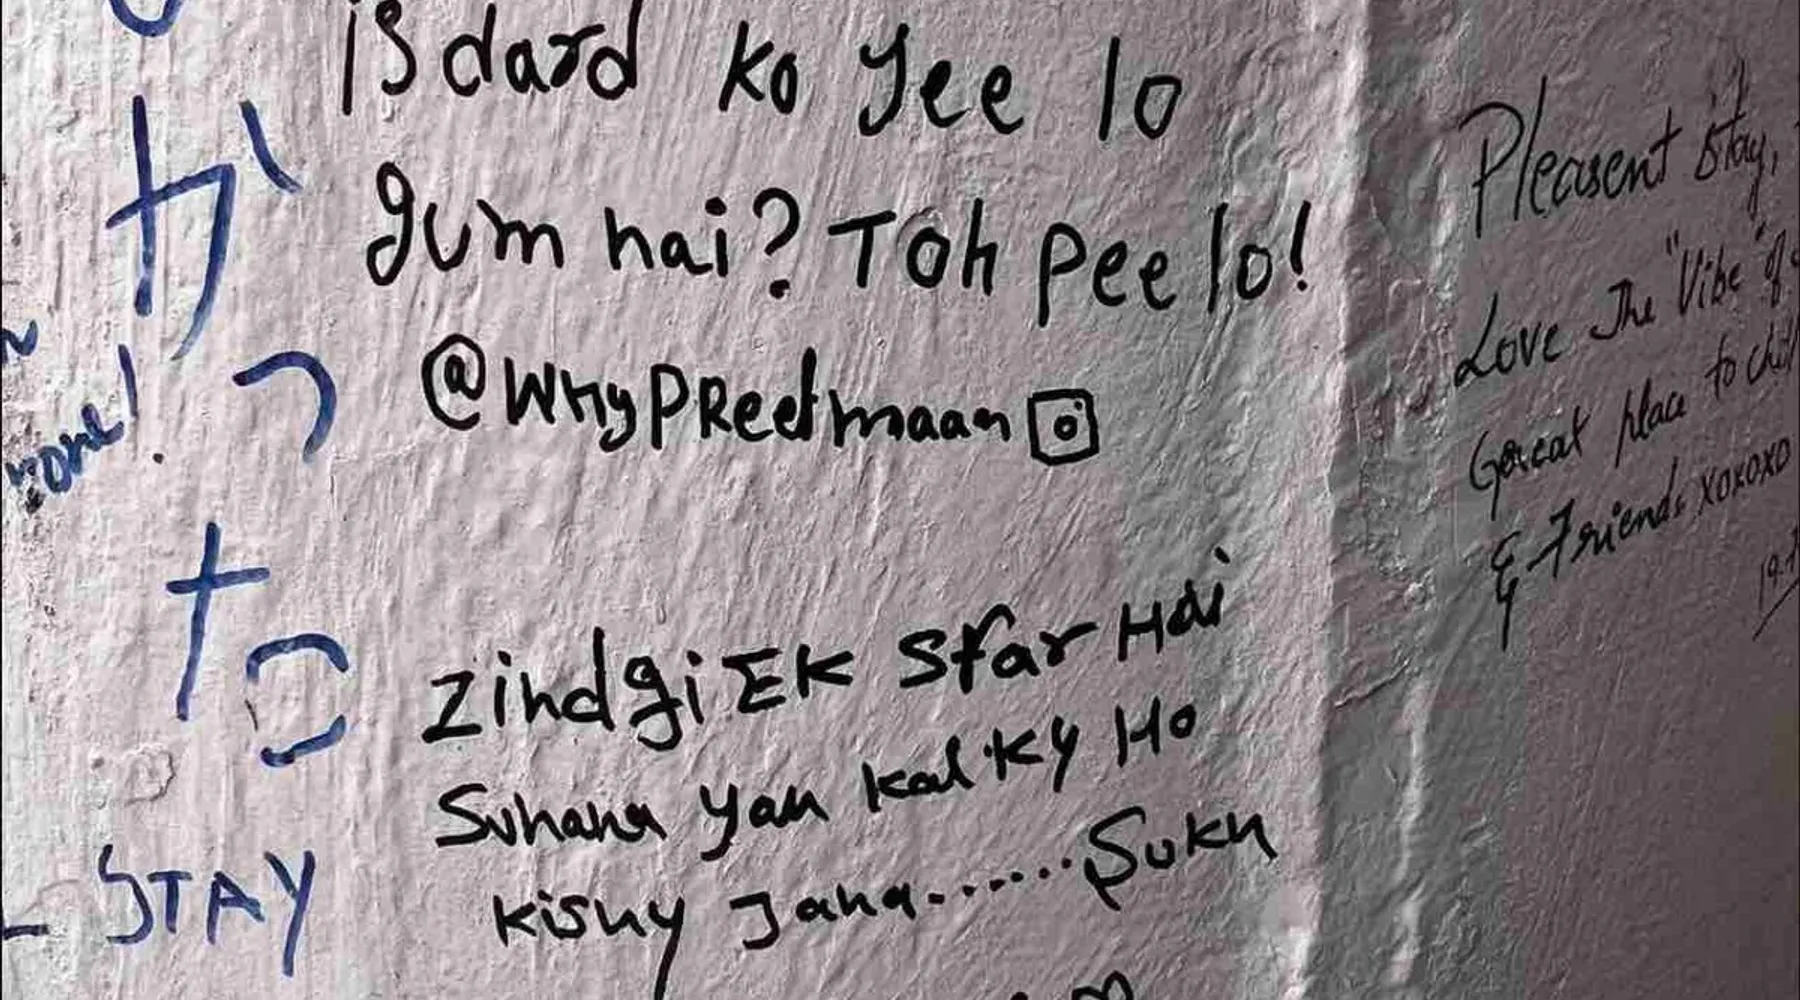 が
っ
た
STAY
is dard ko Jee lo
gum hai? Toh Pee lo!
@WhyPReetmaan
Zindgi EK Sfar Hai
Suhana Yah Kal Ky Ho
Kisny Jana......
Pleasent Stay,
Love The "Vibe" of
Great place to
& Friends xoxoxo